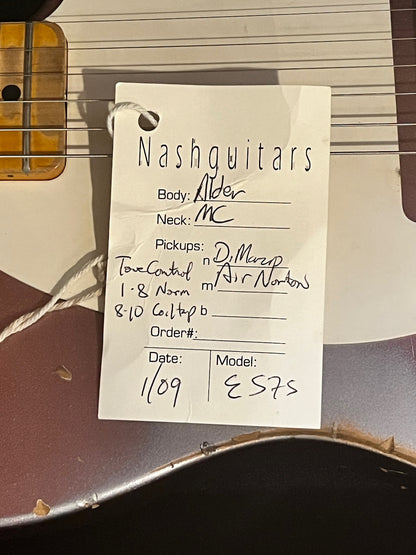 Nashguitars
Body: Alder
Neck: MC
Pickups:
n DiMarzio
Tone Control m Air Nortons
1-8 Norm
8-10 Coiltap b
Order#:
Date: Model:
1/09 E57S